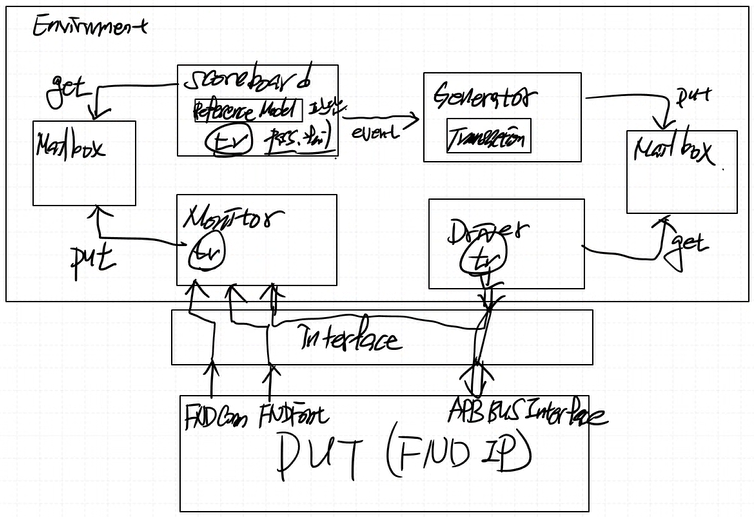 Envirnment
get
Scoreboard
Reference Model
tr
pass.fail
event
Generator
Transaction
put
Mailbox
Mailbox
Monitor
tr
put
Driver
tr
get
Interface
FNDCom FNDFont APB BUS Interface
DUT (FND IP)